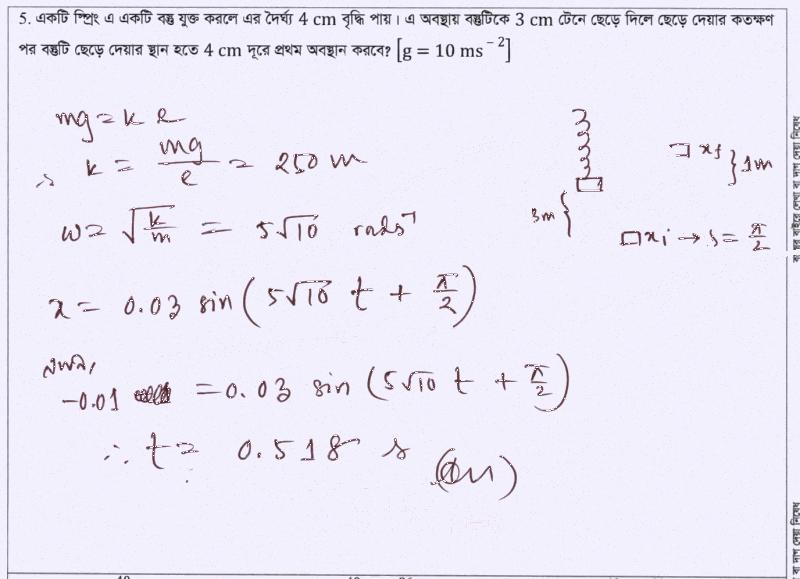 5. একটি স্প্রিং এ একটি বস্তু যুক্ত করলে এর দৈর্ঘ্য 4 cm বৃদ্ধি পায়। এ অবস্থায় বস্তুটিকে 3 cm টেনে ছেড়ে দিলে ছেড়ে দেয়ার কতক্ষণ
পর বস্তুটি ছেড়ে দেয়ার স্থান হতে 4 cm দূরে প্রথম অবস্থান করবে? [g = 10 ms⁻²]
mg = k e
∴ k = mg/e = 250 m
ω = √(k/m) = 5√10 rads⁻¹
x = 0.03 sin (5√10 t + π/2)
-0.01 = 0.03 sin (5√10 t + π/2)
∴ t = 0.518 s (Ans)
xf } 1m
3m {
xi → δ = π/2